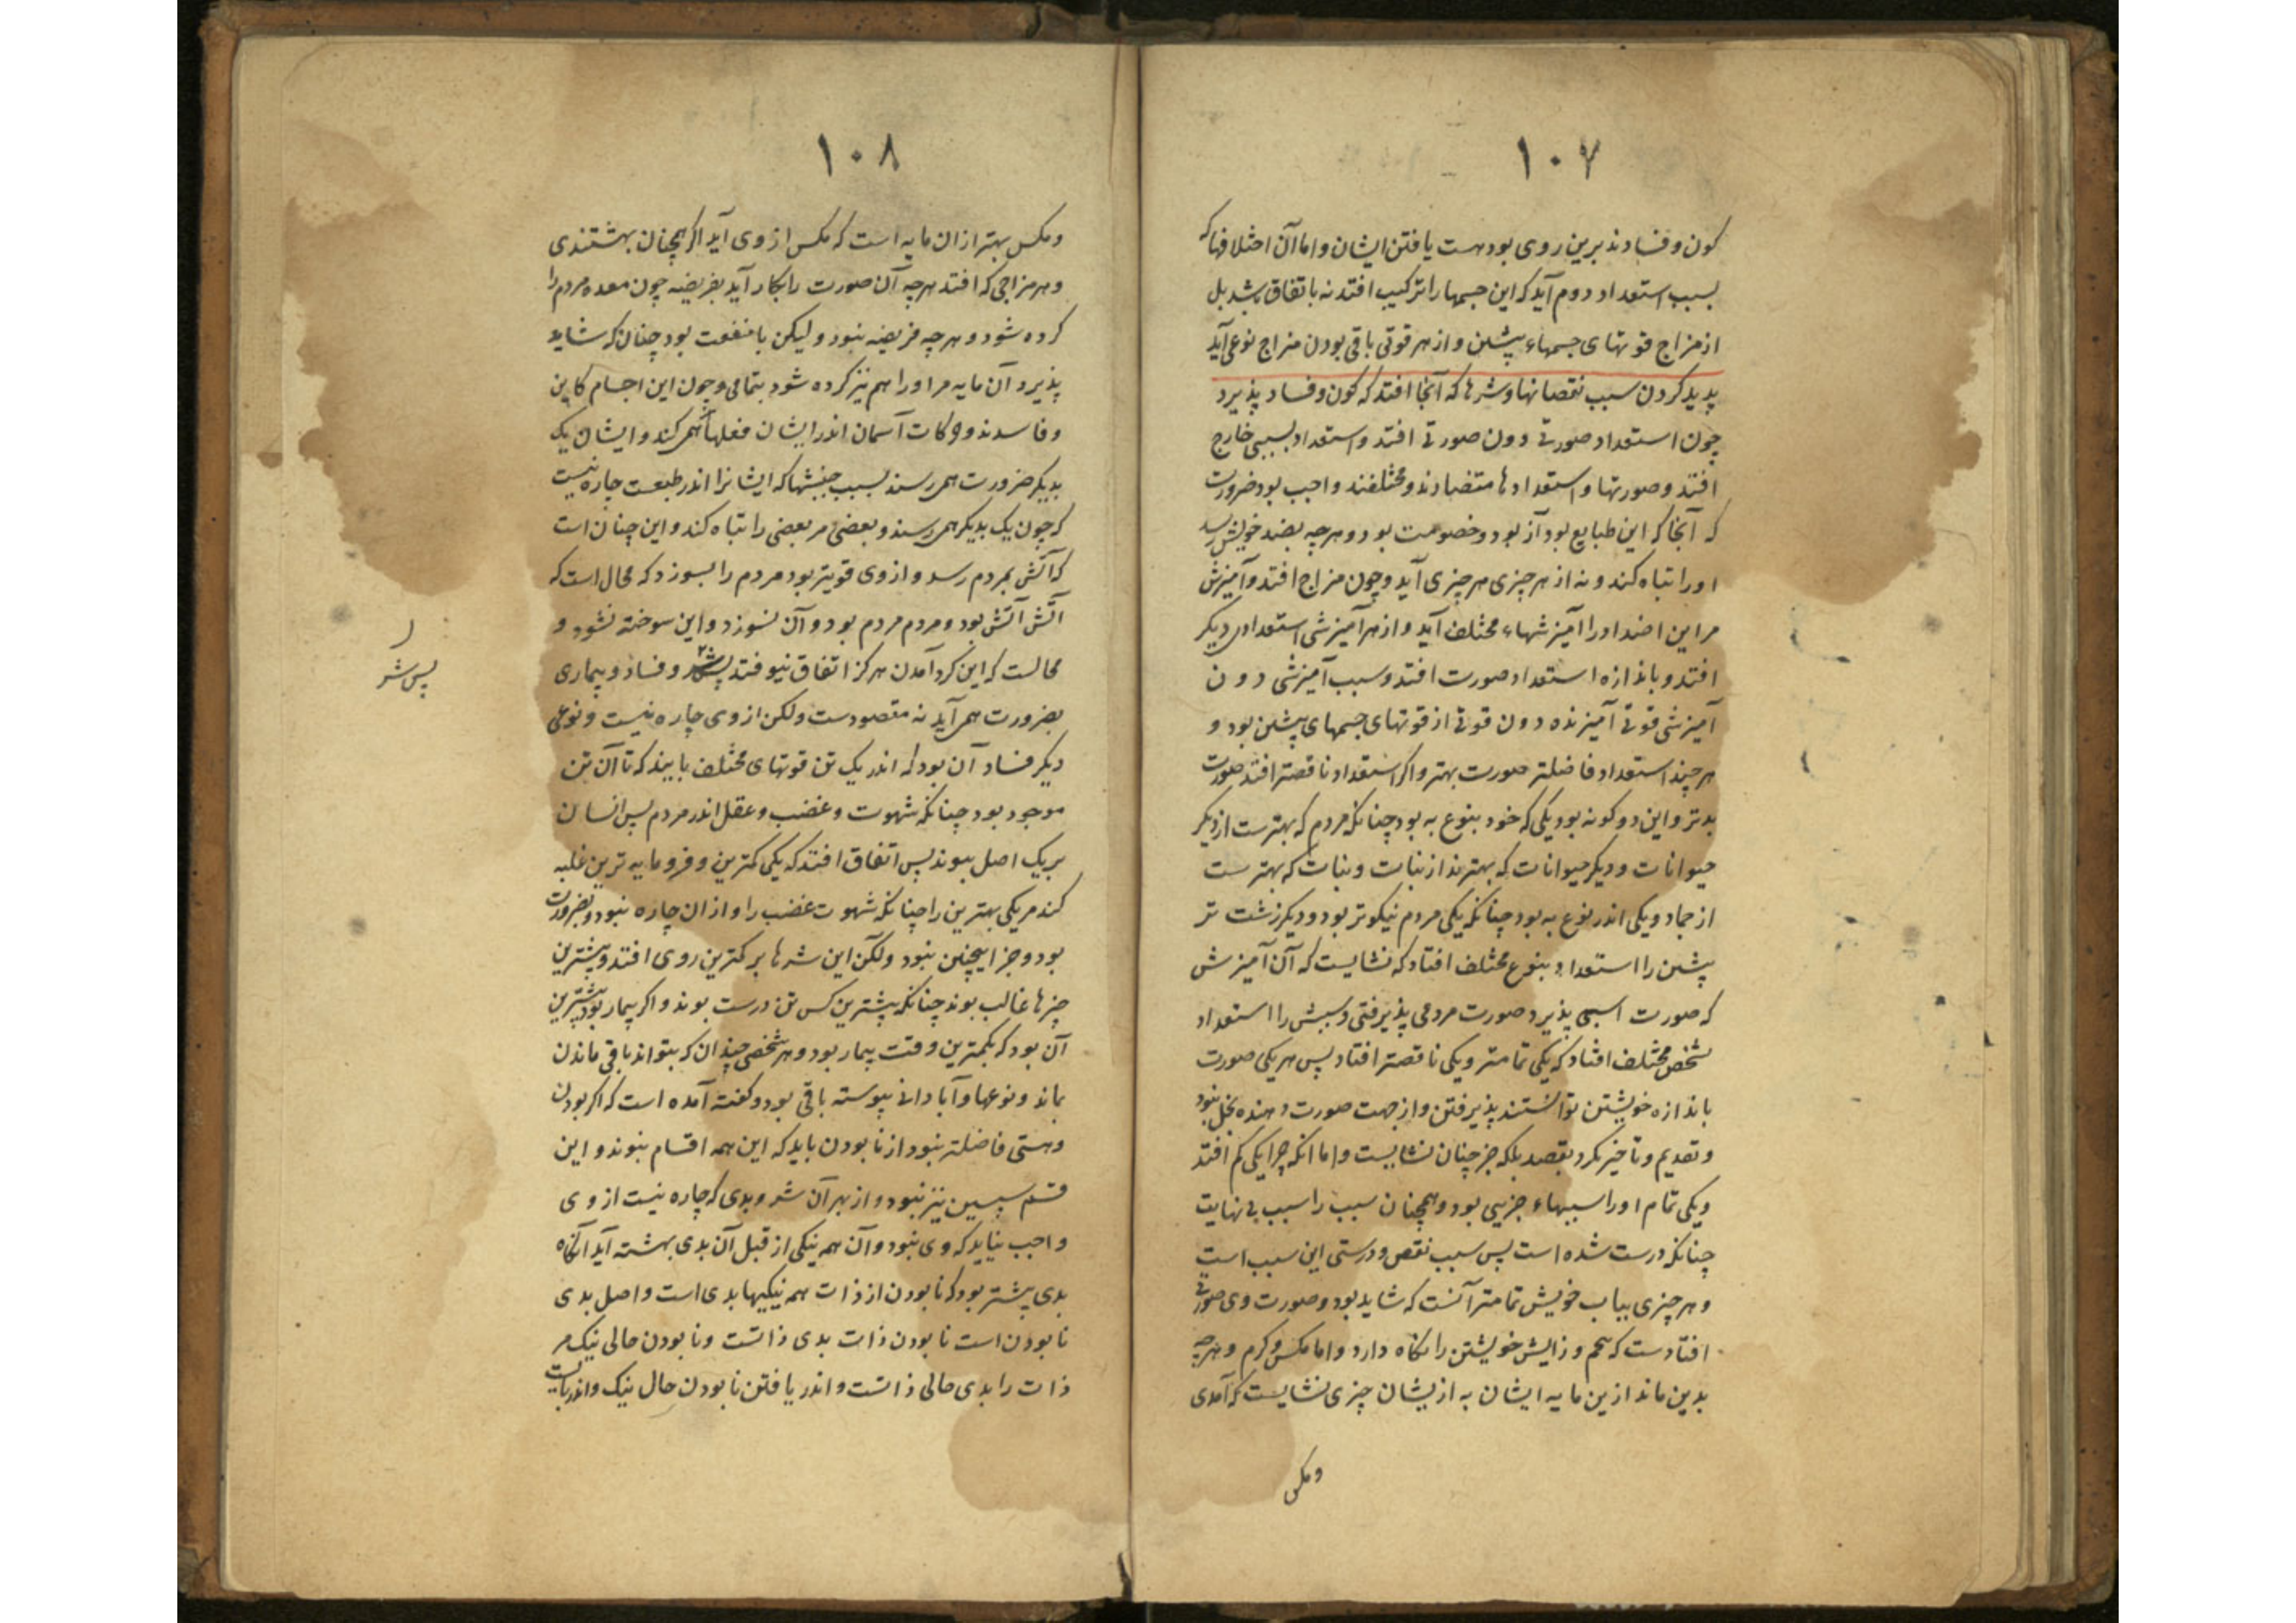 ۱۰۷
کون و فسادند برین روی بود هست یافتن ایشان و اما آن اختلافها که
بسبب استعداد دوم آید که این جسمها را ترکیب افتد نه باتفاق بشد بل
از مزاج قوتهای جسمهاء پیشین و از هر قوتی باقی بودن مزاج نوعی آید
پدید کردن سبب نقصانها و شرها که آنجا افتد که کون و فساد پذیرد
چون استعداد صورتی دون صورتی افتد و استعداد بسببی خارج
افتد و صورتها و استعدادها متضادند و مختلفند واجب بود ضرورت
که آنجا که این طبایع بود آز بود و خصومت بود و هر چه بضد خویش رسد
او را تباه کند و نه از هر چیزی هر چیزی آید و چون مزاج افتد و آمیزش
مر این اضداد را آمیزشهاء مختلف آید و از هر آمیزشی استعدادی دیگر
افتد و باندازه استعداد صورت افتد و سبب آمیزشی دون
آمیزشی قوتی آمیزنده دون قوتی از قوتهای جسمهای پیشین بود و
هر چند استعداد فاضلتر صورت بهتر و اگر استعداد ناقصتر افتد صورت
بدتر و این دو گونه بود یکی که خود بنوع به بود چنانکه مردم که بهترست از دیگر
حیوانات و دیگر حیوانات که بهترند از نبات و نبات که بهترست
از جماد و یکی اندر نوع به بود چنانکه یکی مردم نیکوتر بود و دیگر زشت تر
پیشین را استعداد بنوع مختلف افتاد که نشایست که آن آمیزش
که صورت اسبی پذیرد صورت مردمی پذیرفتی و سپش را استعداد
شخص مختلف افتاد که یکی تمامتر و یکی ناقصتر افتاد پس هر یکی صورت
باندازه خویشتن توانستند پذیرفتن و از جهت صورت دهنده بخل نبود
و تقدیم و تأخیر نکرد بقصد بلکه جز چنان نشایست و اما آنکه چرا یکی کم افتد
و یکی تمام او را سببهاء جزیی بود و همچنان سبب را سبب بی نهایت
چنانکه درست شده است پس سبب نقص و درستی این سبب است
و هر چیزی بباب خویش تمامتر آنست که شاید بود و صورت وی صورتی
افتادست که بهم و زایش خویشتن را نگاه دارد و اما مگس و کرم و هر چه
بدین ماند ازین مایه ایشان به از یشان چیزی نشایست که آمدی
ومگس
۱۰۸
ومگس بهتر از ان مایه است که مگس از وی آید اگر همچنان بهشتندی
و هر مزاجی که افتد هر چه آن صورت را بکار آید بفریضه چون معده مردم را
کرده شود و هر چه فریضه نبود و لیکن با منفعت بود چنان که شاید
پذیرد آن مایه مر او را هم نیز کرده شود بتمامی و چون این اجسام کاین
و فاسدند و حرکات آسمان اندر ایشان فعلها همی کند و ایشان یک
بدیگر ضرورت همی رسند بسبب جنبشها که ایشانرا اندر طبعت چاره نیست
که چون یک بدیگر همی رسند و بعضی مر بعضی را تباه کند و این چنان است
که آتش بمردم رسد و از وی قویتر بود مردم را بسوزد که محال است که
آتش آتش بود و مردم مردم بود و آن نسوزد و این سوخته نشود و
محالست که این گرد آمدن هرگز اتفاق نیوفتد پس شر و فساد و بیماری
بضرورت همی آید نه مقصودست ولکن از وی چاره نیست و نوعی
دیگر فساد آن بود که اندر یک تن قوتهای مختلف بایند که تا آن تن
موجود بود چنانکه شهوت و غضب و عقل اندر مردم پس انسان
بر یک اصل نبوند پس اتفاق افتد که یکی کمترین و فرومایه ترین غلبه
کند مر یکی بهترین را چنانکه شهوت غضب را و از ان چاره نبود و بضرورت
بود و جز اینچنین نبود ولکن این شرها بر کمترین روی افتد و بیشترین
چیزها غالب بوند چنانکه بیشترین کس تن درست بوند و اگر بیمار بود بیشترین
آن بود که بکمترین وقت بیمار بود و هر شخصی چندان که بتواند باقی ماندن
بماند و نوعها و آبادانی پیوسته باقی بود و گفته آمده است که اگر بودن
و هستی فاضلتر نبود از نابودن باید که این همه اقسام نبوند و این
قسم سپسین نیز نبود و از بهر آن شر و بدی که چاره نیست از وی
واجب نیاید که وی نبود و آن همه نیکی از قبل آن بدی بهشته آید آنگاه
بدی بیشتر بود که نابودن از ذات همه نیکیها بدی است و اصل بدی
نابودن است نابودن ذات بدی ذاتست و نابودن حالی نیک مر
ذات را بدی حالی ذاتست و اندر یافتن نابودن حال نیک و اندر بایست
پس شر